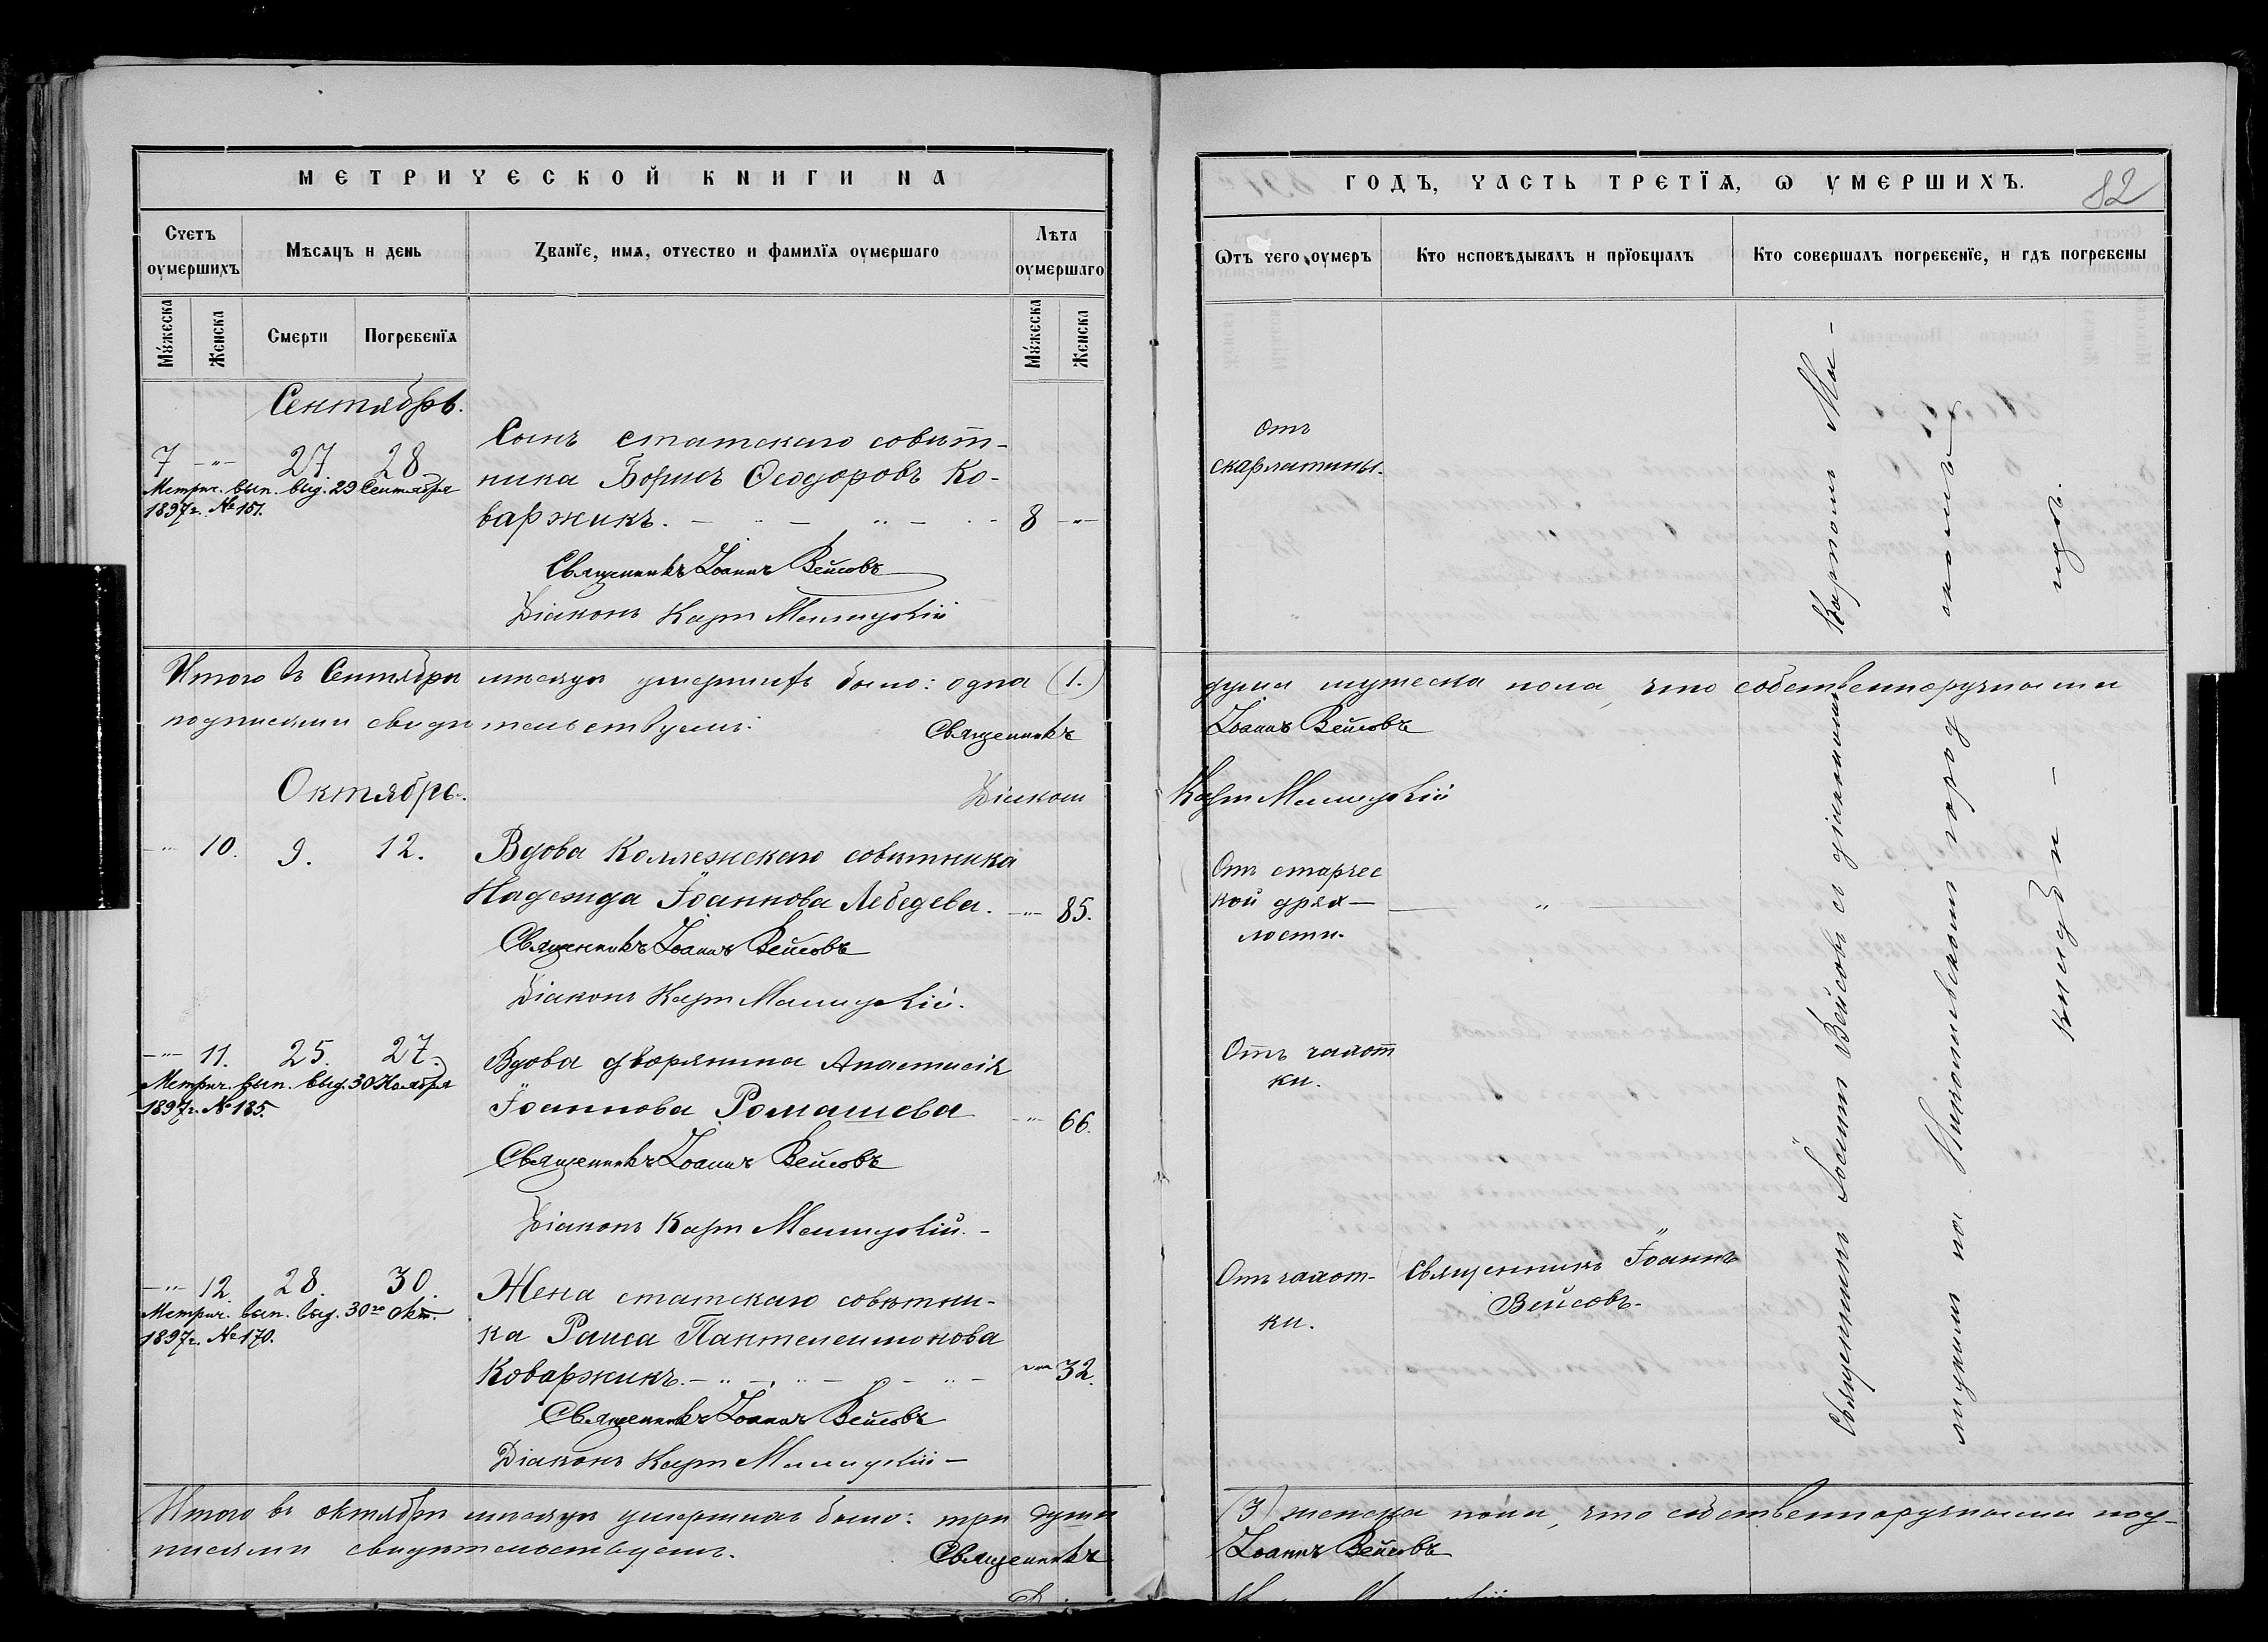 МЕТРИЧЕСКОЙ КНИГИ НА
Счетъ оумершихъ
Мѣсяцъ и день
Званїе, имя, отчество и фамилїя оумершаго
Лѣта оумершаго
Мужеска
Женска
Смерти
Погребенїя
Мужеска
Женска
Сентябрь.
7 -"- 27 28
Метрич. вып. выд. 29 Сентября
1897 г. № 151.
Сынъ статскаго совѣт-
ника Борисъ Ѳеодоровъ Ко-
варжикъ. 8 -"-
Священникъ Іоаннъ Вейсовъ
Діаконъ Карпъ
Итого въ Сентябрѣ мѣсяцѣ умершихъ было: одна (1.)
подписями свидѣтельствуемъ:
Священникъ
Октябрь.
Діаконъ
-"- 10. 9. 12.
Вдова Коллежскаго совѣтника
Надежда Іоаннова Лебедева. -"- 85.
Священникъ Іоаннъ Вейсовъ
Діаконъ Карпъ
-"- 11. 25. 27.
Метрич. вып. выд. 30 Ноября
1897 г. № 185.
Вдова дворянина Анастасія
Іоаннова Ромашева -"- 66.
Священникъ Іоаннъ Вейсовъ
Діаконъ Карпъ
-"- 12 28. 30.
Метрич. вып. выд. 30го Окт.
1897 г. № 170.
Жена статскаго совѣтни-
ка Раиса Пантелеимонова
Коваржикъ. -"- 32.
Священникъ Іоаннъ Вейсовъ
Діаконъ Карпъ
Итого въ октябрѣ мѣсяцѣ умершихъ было: три души
писями свидѣтельствуемъ.
Священникъ
ГОДЪ, ЧАСТЬ ТРЕТЇЯ, Ѡ УМЕРШИХЪ.
82
Ѿтъ чего оумеръ
Кто исповѣдывалъ и прїобщалъ
Кто совершалъ погребенїе, и гдѣ погребены
отъ
скарлатины.
душа мужеска пола, что собственноручными
Іоаннъ Вейсовъ
Карпъ
Отъ старчес
кой дрях-
лости.
"
Отъ чахот
ки.
Отъ чахот-
ки.
Священникъ Іоаннъ
Вейсовъ.
Священникъ Іоаннъ Вейсовъ съ діакономъ Карпомъ
на Николаевскомъ город
кладби-
щѣ.
(3) женска пола, что собственноручными под-
Іоаннъ Вейсовъ